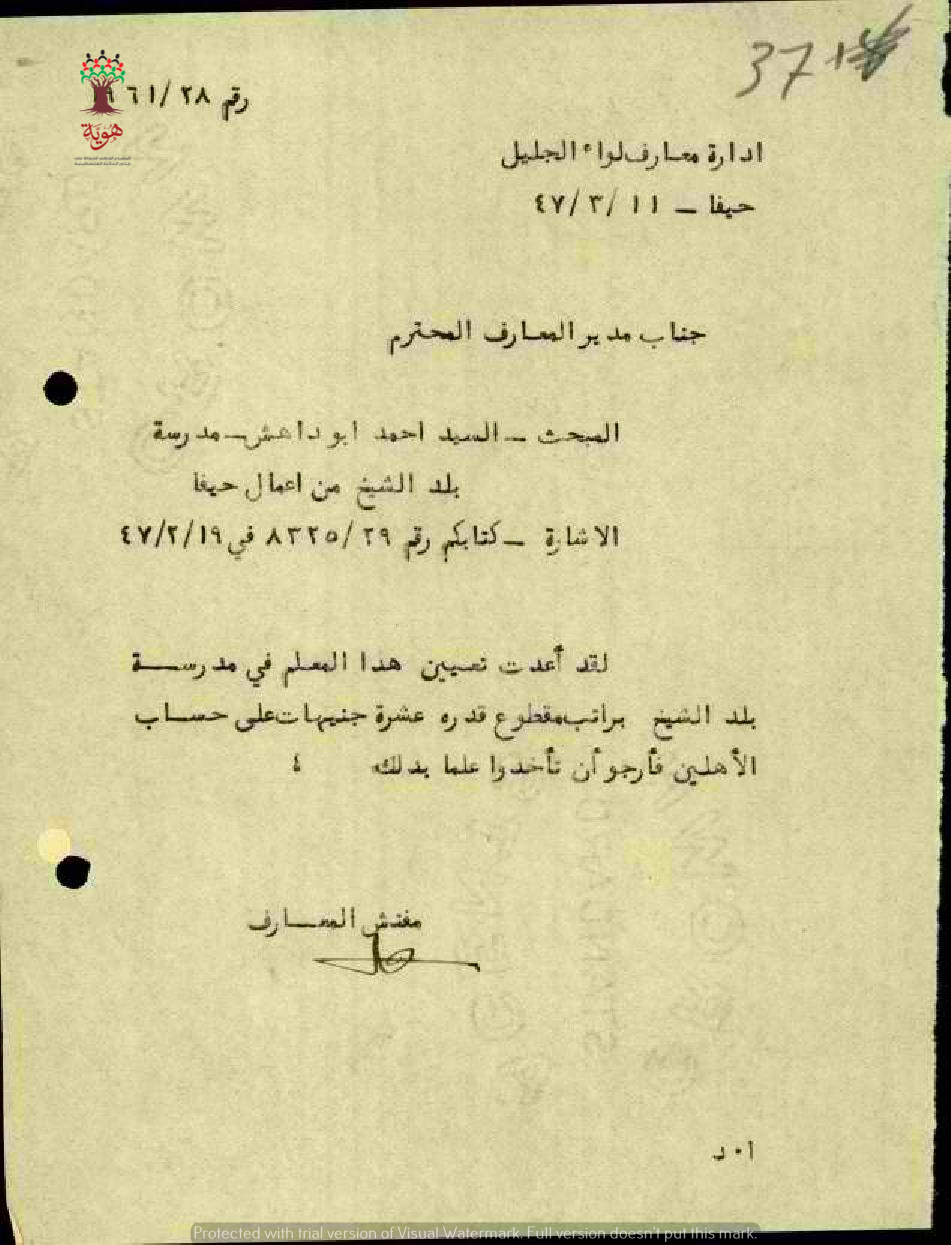 37
رقم ٢٨/ ٦١
هوية
ادارة معارف لواء الجليل
حيفا – ١١ /٣ /٤٧
جناب مدير المعارف المحترم
المبحث – السيد احمد ابو داهش – مدرسة
بلد الشيخ من اعمال حيفا
الاشارة – كتابكم رقم ٢٩ /٨٣٢٥ في ٤٧/٢/١٩
لقد أعدت تعيين هذا المعلم في مدرســـة
بلد الشيخ براتب مقطوع قدره عشرة جنيهات على حســاب
الأهلين فأرجو أن تأخدوا علما بدلك ٤
مفتش المعــارف
ا٠ د
Protected with trial version of Visual Watermark. Full version doesn't put this mark.